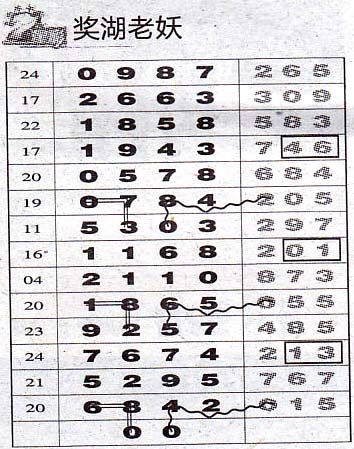 奖湖老妖
24 0 9 8 7 2 6 5
17 2 6 6 3 3 0 9
22 1 8 5 8 5 8 3
17 1 9 4 3 7 4 6
20 0 5 7 8 6 8 4
19 0 7 8 4 2 0 5
11 5 3 0 3 2 9 7
16 1 1 6 8 2 0 1
04 2 1 1 0 8 7 3
20 1 8 6 5 0 5 5
23 9 2 5 7 4 8 5
24 7 6 7 4 2 1 3
21 5 2 9 5 7 6 7
20 6 8 4 2 0 1 5
0 0